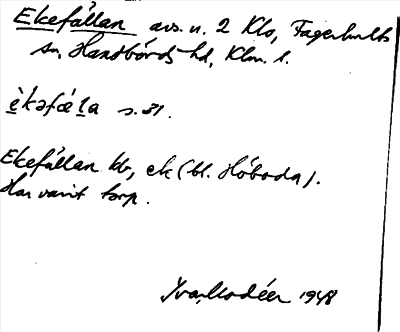 Ekefállan avs. u. 2 Klo, Fagerhults
sn, Handbörds hd, Klm. l.
è̱kəfœ́ḻa s. 31.
Ekefállan bb, ek (bl. Hóboda).
Har varit torp.
Ivar Modéer 1948